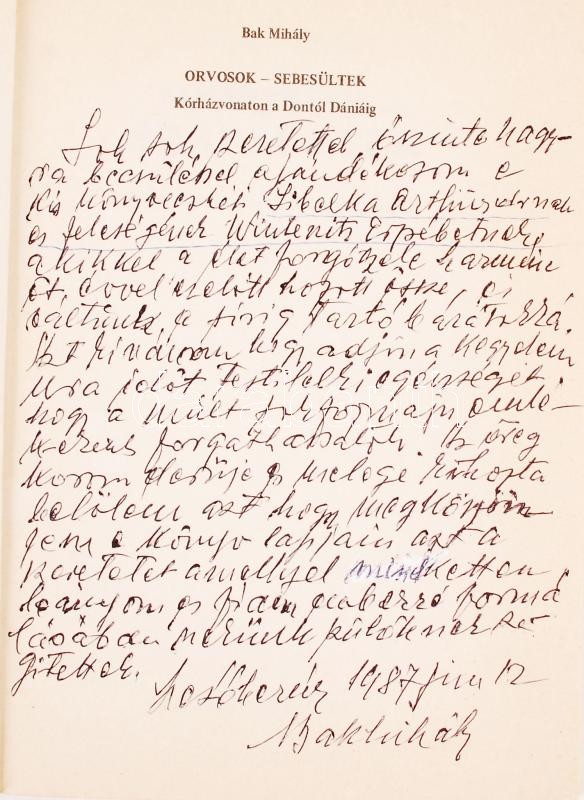 Bak Mihály
ORVOSOK – SEBESÜLTEK
Kórházvonaton a Dontól Dániáig
Sok sok szeretettel, őszinte nagy-
ra becsüléssel ajándékozom e
kis könyvecskét Libelka Arthur
és feleségének Winternitz Erzsébetnek,
akikkel a élet forgószele harminc
öt évvel ezelőtt hozott össze, és
váltunk a sírig tartó barátokká
Azt kívánom hogy adjon a kegyelem
Ura időt testi lelki egészséget
hogy a múlt sokformájú emlé-
kezeus Az öreg
korom derűje s melege
belőlem azt hogy megköszön
jem e könyv lapjain azt a
szeretetet amellyel mindketten
leányom és fiam emberré formá
lásában nekünk szülőknek se
gítettek.
1987 jun 12
Bak Mihály